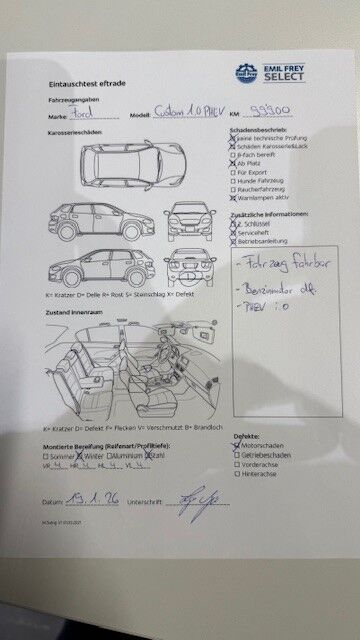 EMIL FREY
SELECT
Eintauschtest eftrade
Fahrzeugangaben
Marke: Ford Modell: Custom 1.0 PHEV KM: 99900
Karosserieschäden
K= Kratzer D= Delle R= Rost S= Steinschlag X= Defekt
Zustand Innenraum
K= Kratzer D= Defekt F= Flecken V= Verschmutzt B= Brandloch
Montierte Bereifung (Reifenart/Profiltiefe):
Sommer Winter Aluminium Stahl
VR 4 HR 4 HL 4 VL 4
Schadensbeschrieb:
keine technische Prüfung
Schäden Karosserie&Lack
B-fach bereift
Ab Platz
Für Export
Hunde Fahrzeug
Raucherfahrzeug
Warnlampen aktiv
Zusätzliche Informationen:
2. Schlüssel
Serviceheft
Betriebsanleitung
- Fahrzeug fahrbar
- Benzinmotor def.
- PHEV i.O
Defekte:
Motorschaden
Getriebeschaden
Vorderachse
Hinterachse
Datum: 19.1.26 Unterschrift: